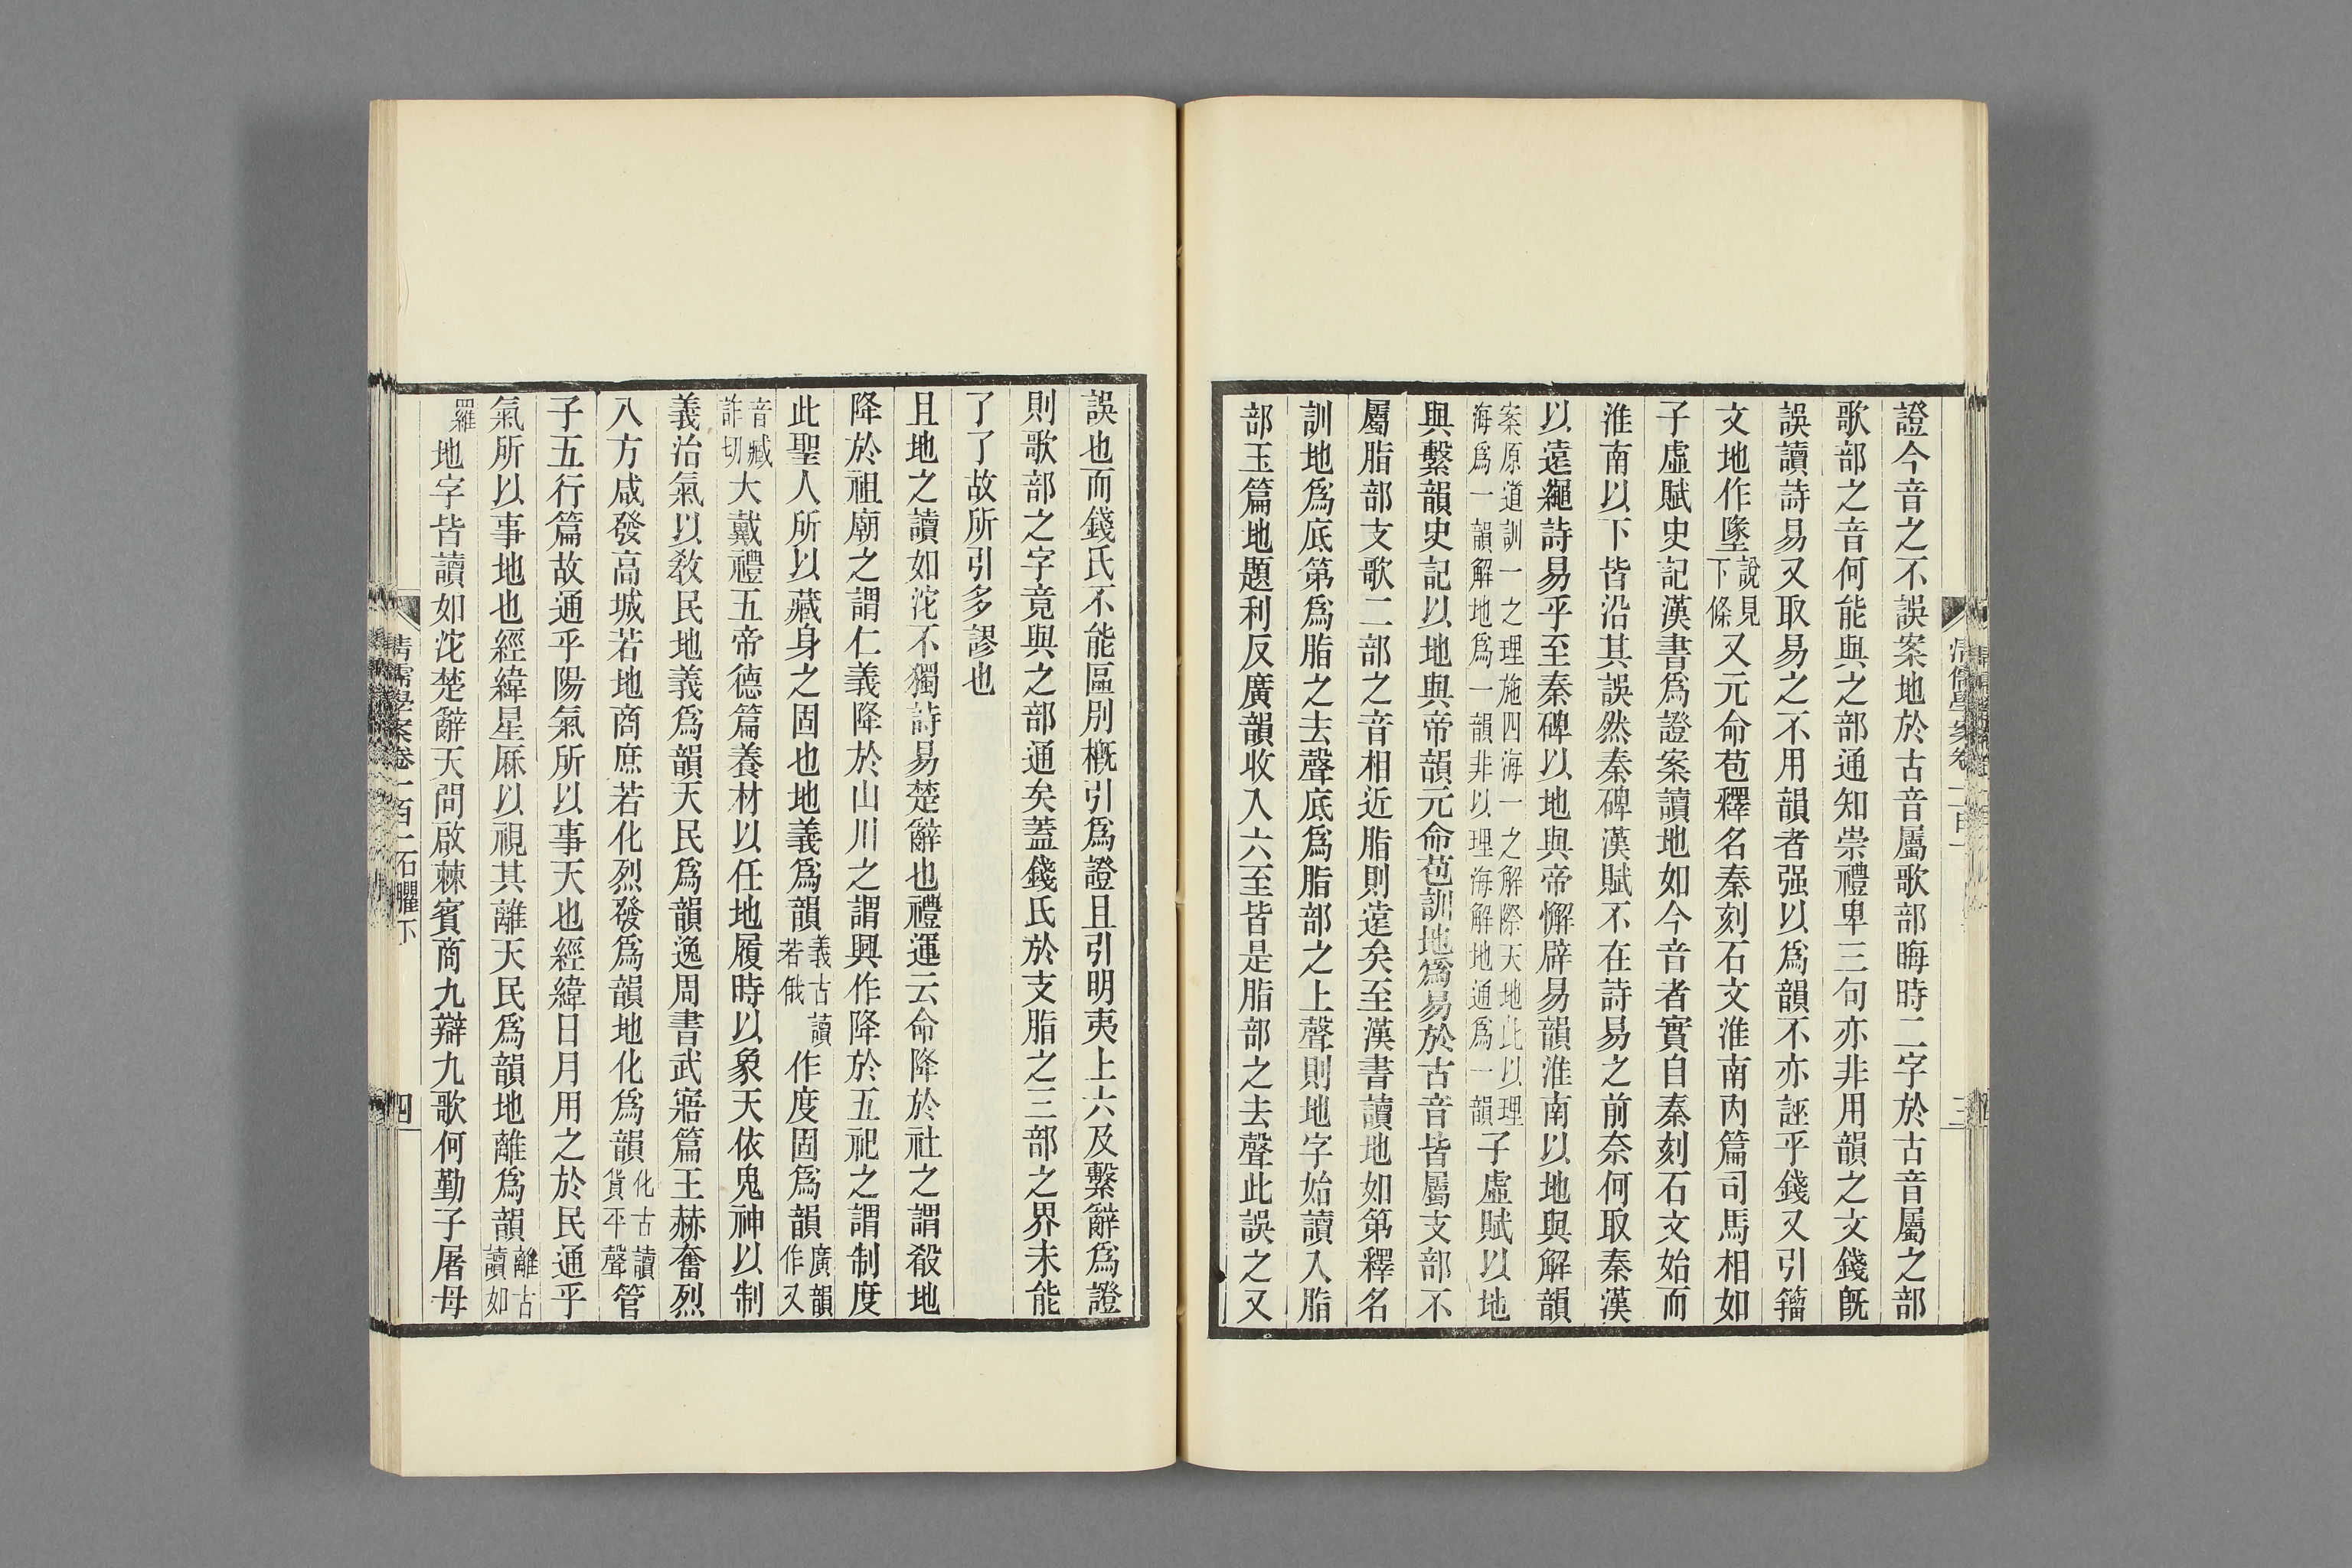 證今音之不誤案地於古音屬歌部晦時二字於古音屬之部
歌部之音何能與之部通知崇禮卑三句亦非用韻之文錢旣
誤讀詩易又取易之不用韻者强以爲韻不亦誣乎錢又引籀
文地作墬說見下條又元命苞釋名秦刻石文淮南内篇司馬相如
子虛賦史記漢書爲證案讀地如今音者實自秦刻石文始而
淮南以下皆沿其誤然秦碑漢賦不在詩易之前奈何取秦漢
以遠繩詩易乎至秦碑以地與帝懈辟易韻淮南以地與解韻
案原道訓一之理施四海一之解際天地此以理海爲一韻解地爲一韻非以理海解地通爲一韻子虛賦以地
與繫韻史記以地與帝韻元命苞訓地爲易於古音皆屬支部不
屬脂部支歌二部之音相近脂則遠矣至漢書讀地如第釋名
訓地爲底第爲脂之去聲底爲脂部之上聲則地字始讀入脂
部玉篇地題利反廣韻收入六至皆是脂部之去聲此誤之又
誤也而錢氏不能區別槪引爲證且引明夷上六及繫辭爲證
則歌部之字竟與之部通矣蓋錢氏於支脂之三部之界未能
了了故所引多謬也
且地之讀如沱不獨詩易楚辭也禮運云命降於社之謂殽地
降於祖廟之謂仁義降於山川之謂興作降於五祀之謂制度
此聖人所以藏身之固也地義爲韻義古讀若俄作度固爲韻廣韻作又
音臧祚切大戴禮五帝德篇養材以任地履時以象天依鬼神以制
義治氣以敎民地義爲韻天民爲韻逸周書武寤篇王赫奮烈
八方咸發高城若地商庶若化烈發爲韻地化爲韻化古讀貨平聲管
子五行篇故通乎陽氣所以事天也經緯日月用之於民通乎
氣所以事地也經緯星厤以視其離天民爲韻地離爲韻離古讀如
羅地字皆讀如沱楚辭天問啟棘賓商九辯九歌何勤子屠母
清儒學案卷一百一 石臞下
四